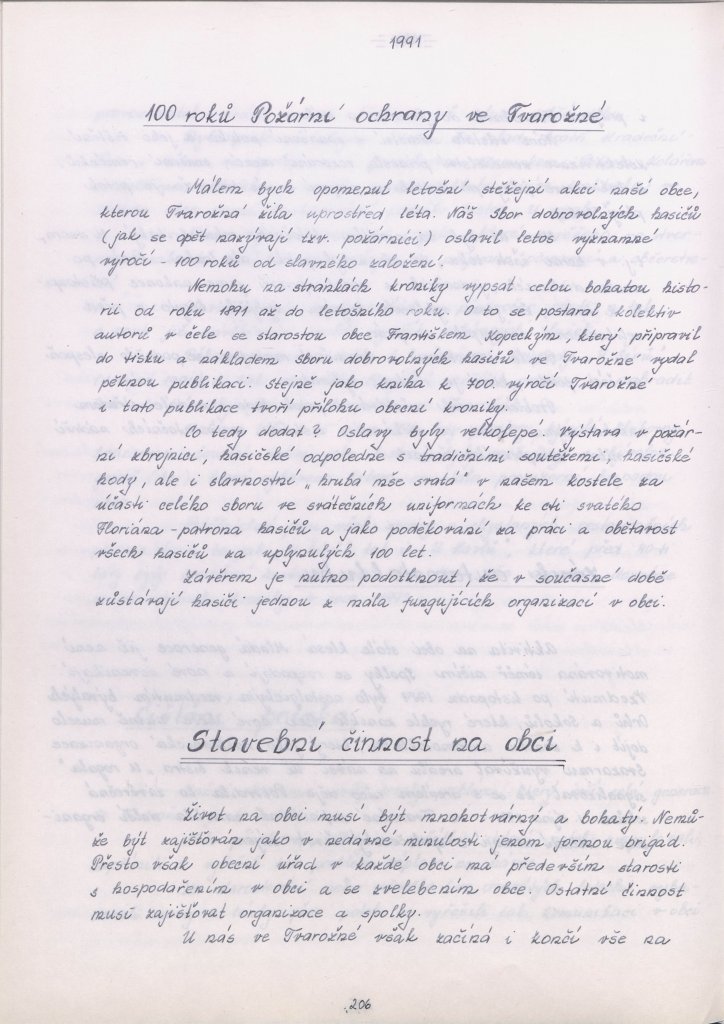 1991
100 roků Požární ochrany ve Tvarožné
Málem bych opomenul letošní stěžejní akci naší obce,
kterou Tvarožná žila uprostřed léta. Náš sbor dobrovolných hasičů
(jak se opět nazývají tzv. požárníci) oslavil letos významné
výročí - 100 roků od slavného založení.
Nemohu na stránkách kroniky vypsat celou bohatou histo-
rii od roku 1891 až do letošního roku. O to se postaral kolektiv
autorů v čele se starostou obce Františkem Kopeckým, který připravil
do tisku a nákladem sboru dobrovolných hasičů ve Tvarožné vydal
pěknou publikaci. Stejně jako kniha k 700. výročí Tvarožné
i tato publikace tvoří přílohu obecní kroniky.
Co tedy dodat? Oslavy byly velkolepé. Výstava v požár-
ní zbrojnici, hasičské odpoledne s tradičními soutěžemi, hasičské
hody, ale i slavnostní „hrubá mše svatá" v našem kostele za
účasti celého sboru ve svátečních uniformách ke cti svatého
Floriána - patrona hasičů a jako poděkování za práci a obětavost
všech hasičů za uplynulých 100 let.
Závěrem je nutno podotknout, že v současné době
zůstávají hasiči jednou z mála fungujících organizací v obci.
Stavební činnost na obci
Život na obci musí být mnohotvárný a bohatý. Nemů-
že být zajišťován jako v nedávné minulosti jenom formou brigád.
Přesto však obecní úřad v každé obci má především starosti
s hospodařením v obci a se zvelebením obce. Ostatní činnost
musí zajišťovat organizace a spolky.
U nás ve Tvarožné však začíná i končí vše na
206